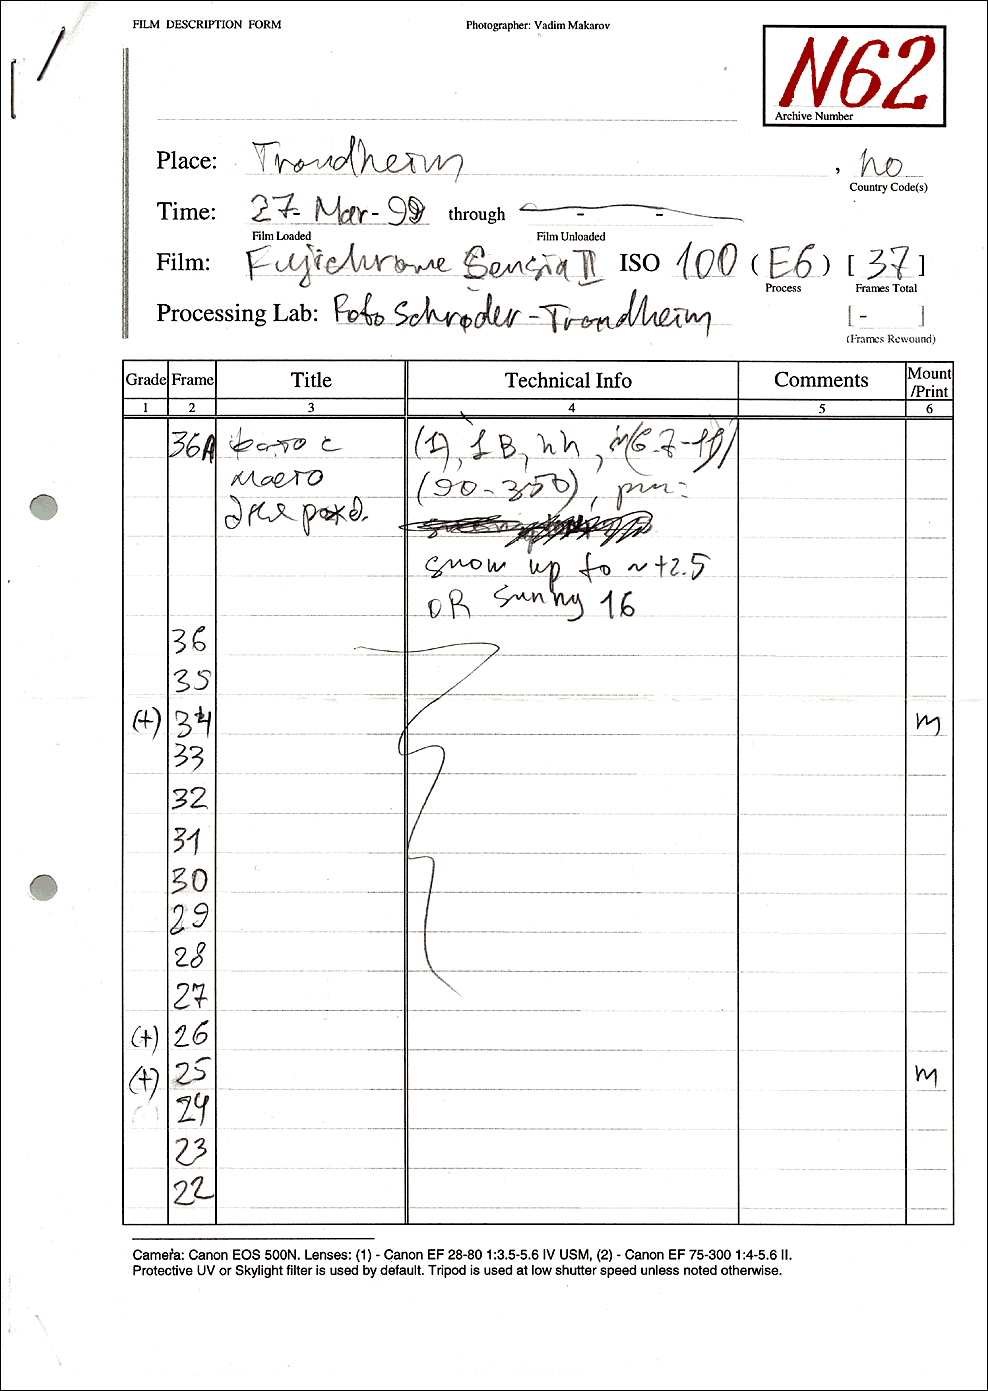 FILM DESCRIPTION FORM
Photographer: Vadim Makarov
N62
Archive Number
Place: Trondheim , no
Country Code(s)
Time: 27-Mar-99 through - -
Film Loaded Film Unloaded
Film: Fujichrome Sensia II ISO 100 (E6) [37]
Process Frames Total
Processing Lab: Foto Schrøder-Trondheim [-]
(Frames Rewound)
Grade Frame Title Technical Info Comments Mount /Print
1 2 3 4 5 6
36A фото с (1), 1B, нн,
место (90-350),
дня рожд.
snow up to ~+2.5
OR sunny 16
36
35
(+) 34 m
33
32
31
30
29
28
27
(+) 26
(+) 25 m
24
23
22
Camera: Canon EOS 500N. Lenses: (1) - Canon EF 28-80 1:3.5-5.6 IV USM, (2) - Canon EF 75-300 1:4-5.6 II.
Protective UV or Skylight filter is used by default. Tripod is used at low shutter speed unless noted otherwise.